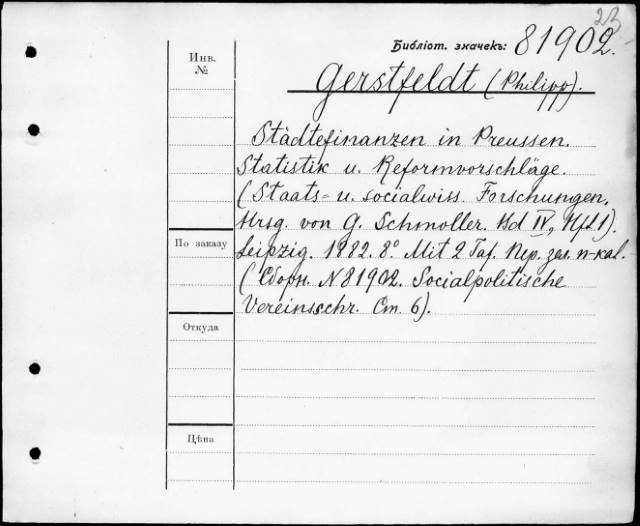 23
Библіот. значекъ: 81902.
Инв.
№
Gerstfeldt (Philipp).
Städtefinanzen in Preussen.
Statistik u. Reformvorschläge.
(Staats- u. socialwiss. Forschungen.
Hrsg. von G. Schmoller. Bd IV, Hft 1).
По заказу
Leipzig. 1882. 8° Mit 2 Taf. Пер. зел. п-кал.
(Сборн. N 81902. Socialpolitische
Vereinsschr. Ст. 6).
Откуда
Цѣна